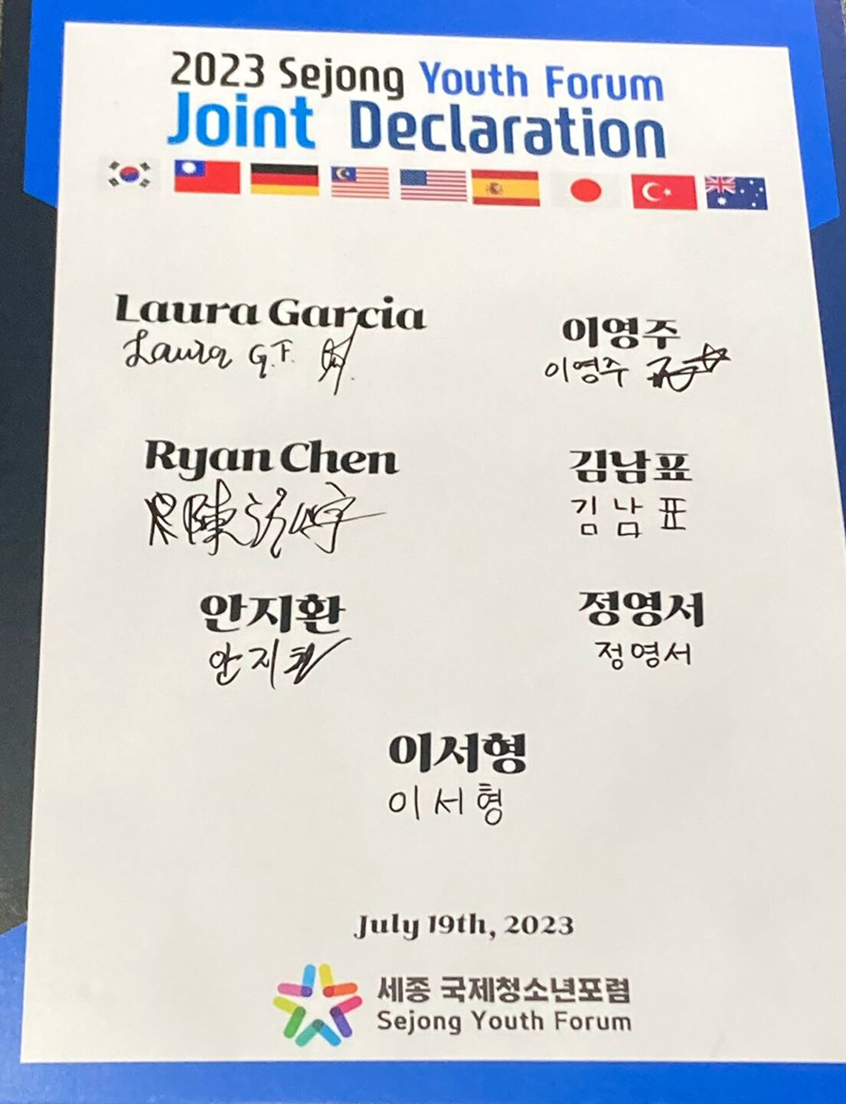 2023 Sejong Youth Forum
Joint Declaration
Laura Garcia
Laura G.F.
이영주
이영주
Ryan Chen
陳
김남표
김남표
안지환
안지환
정영서
정영서
이서형
이서형
July 19th, 2023
세종 국제청소년포럼
Sejong Youth Forum